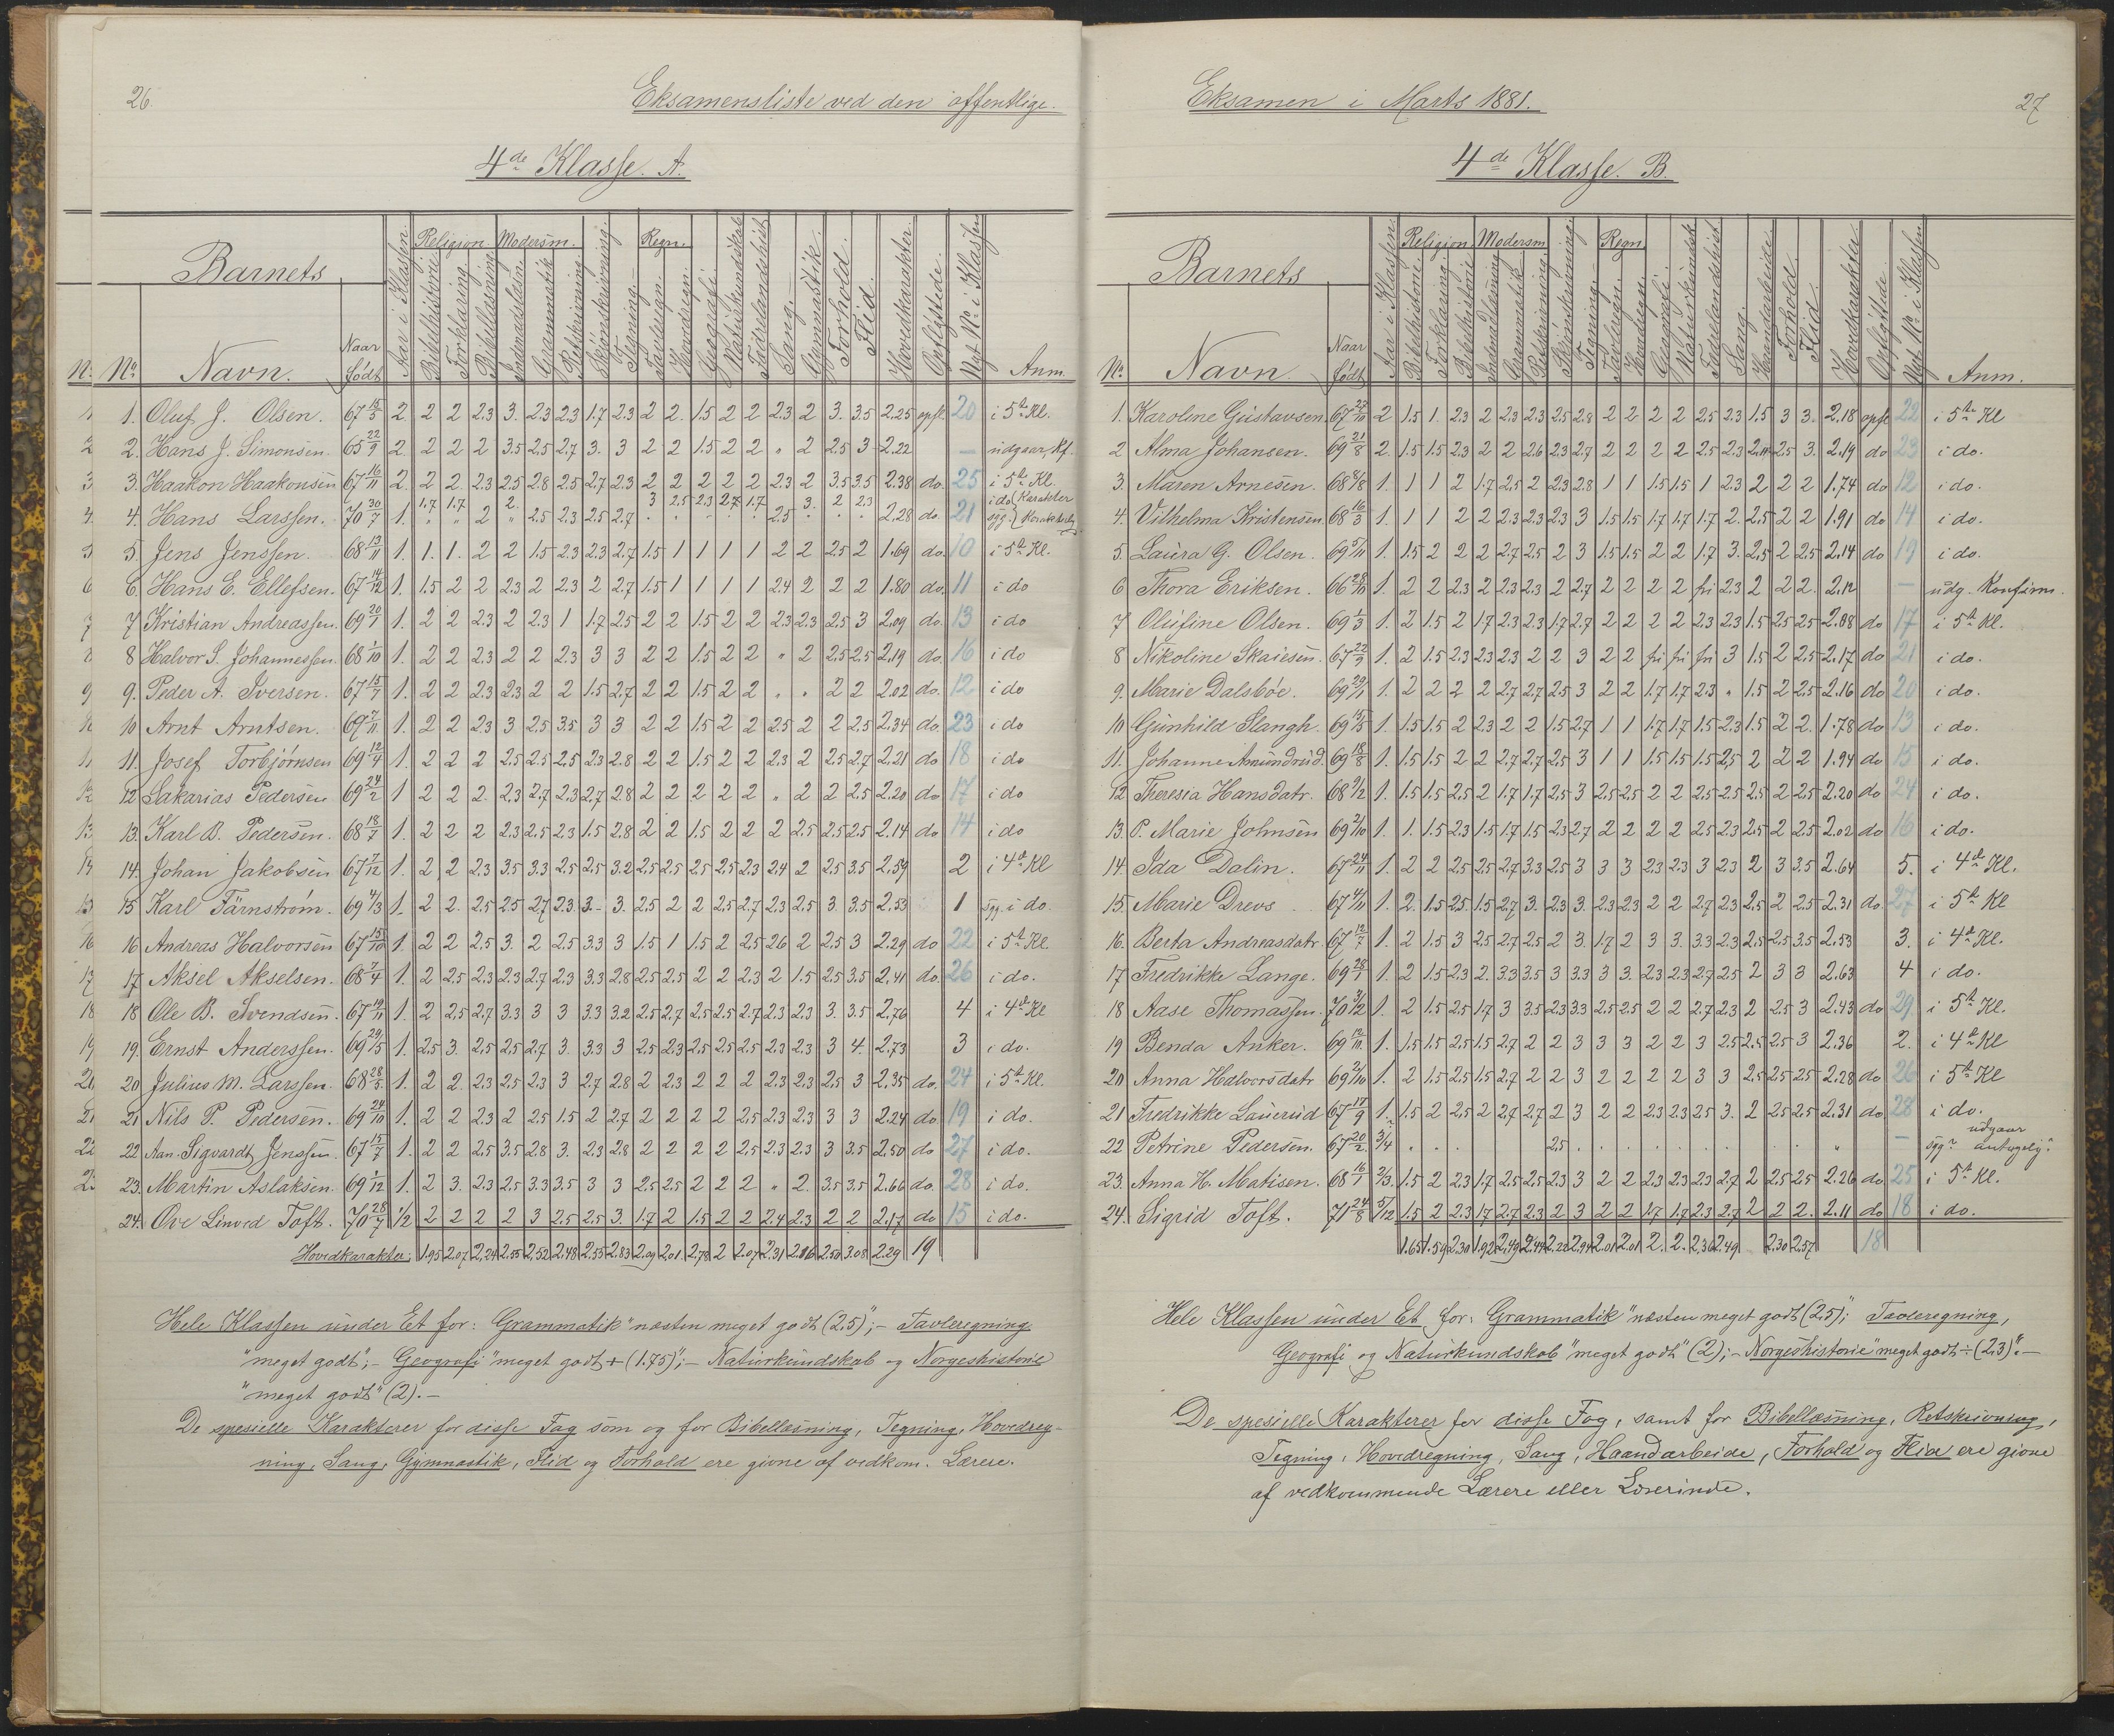 26.
Eksamensliste ved den offentlige.
4de Klasse. A.
Barnets
Religion Modersm. Regn.
No No Navn. Naar født Aar i Klassen. Bibelhistorie Forklaring. Bibellæsning Indenadslæsn. Grammatik Retskrivning. Skjønskrivning. Tegning. Tavleregn. Hovedregn. Geografi Naturkundskab Fædrelandshist. Sang. Gymnastik. Forhold. Flid. Hovedkarakter. Opflyttede. Nyt No i Klassen Anm.
1. Oluf J. Olsen. 67 15/5 2 2 2 2.3 3. 2.3 2.3 1.7 2.3 2 2. 1.5 2 2 2.3 2 3. 3.5 2.25 opfl. 20 i 5te Kl.
2. Hans J. Simonsen. 65 22/9 2. 2 2 2 3.5 2.5 2.7 3. 3 2 2 1.5 2 2 " 2 2.5 3 2.22 — udgaar, Kf.
3. Haakon Haakonsen 67 16/11 2. 2 2 2.3 2.5 2.8 2.5 2.7 2.3 2 2 2 2 2 2.3 2 3.5 3.5 2.38 do. 25 i 5te Kl.
4. Hans Larssen. 70 30/7 1. 1.7 1.7 2 2. 2.5 2.3 2.5 2.7 3 2.5 2.3 2.7 1.7 2.5 3. 2 2.3 2.28 do. 21 i do Karakter
5. Jens Jenssen. 68 13/11 1. 1. 1. 2 2 1.5 2.3 2.3 2.7 1.5 1 1 1 1 2 2 2.5 2 1.69 do. 10 i 5te Kl.
6. Hans E. Ellefsen. 67 14/12 1. 1.5 2 2 2.3 2 2.3 2 2.7 1.5 1 1 1 1 2.4 2 2 2 1.80 do. 11 i do
7 Kristian Andreassen. 69 20/1 1. 2 2 2.3 2 2.3 1 1.7 2.5 2 2 1.5 2 2 2.3 2.3 2.5 3 2.09 do. 13 i do
8 Halvor S. Johannessen. 68 1/10 1. 2 2 2.3 2 2 2.3 3 3 2 2 1.5 2 2 " 2 2.5 2.5 2.19 do. 16 i do
9. Peder A. Iversen. 67 15/7 1. 2 2 2.3 2.3 2 2 1.5 2.7 2 2 1.5 2 2 " " 2 2 2.02 do. 12 i do
10 Arnt Arntsen. 69 7/11 1. 2 2 2.3 3 2.5 3.5 3 3 2 2 1.5 2 2 2.5 2 2 2.5 2.34 do. 23 i do
11. Josef Torbjørnsen 69 12/4 1. 2 2 2 2.5 2.5 2.5 2.3 2.8 2 2 1.5 2 2 2.3 2 2.5 2.7 2.21 do 18 i do
12 Sakarias Pedersen 69 24/2 1 2 2 2. 2.3 2.7 2.3 2.7 2.8 2 2 2 2 2 " 2 2 2.5 2.20 do 17 i do
13. Karl B. Pedersen. 68 18/7 1. 2 2 2 2.3 2.5 2.3 1.5 2.8 2 2 1.5 2 2 2 2.5 2.5 2.5 2.14 do 14 i do
14. Johan Jakobsen 67 7/12 1. 2 2 2.3 3.5 3.3 2.5 2.5 3.2 2.5 2.5 2.5 2.5 2.3 2.4 2 2.5 3.5 2.59 2 i 4de Kl
15 Karl Färnström. 69 4/3 1. 2 2. 2.5 2.5 2.7 2.3 3. 3. 2.5 2 2 2.5 2.7 2.3 2.5 3. 3.5 2.53 1 syg. i do.
16 Andreas Halvorsen 67 15/10 1. 2 2 2.5 3. 2 2.5 3.3 3 1.5 1 1.5 2 2.5 2.6 2 2.5 3 2.29 do 22 i 5te Kl.
17 Aksel Akselsen. 68 7/4 1. 2 2.5 2.3 2.3 2.7 2.3 3.3 2.8 2.5 2.5 2 2 2.3 2 1.5 2.5 3.5 2.41 do. 26 i do.
18 Ole B. Svendsen. 67 19/11 1. 2 2.5 2.7 3.3 3 3 3.3 3.2 2.5 2.7 2.5 2.5 2.7 2.3 2.3 3. 3.5 2.76 4 i 4de Kl
19. Ernst Anderssen. 69 29/5 1. 2.5 3. 2.5 2.5 2.7 3. 3.3 3 2.5 2.3 2.5 2.5 2.5 2.3 2.3 3 4. 2.73 3 i do.
20 Julius M. Larssen. 68 28/5 1. 2 2 2.3 2.5 2.3 3 2.7 2.8 2 2.3 2 2 2 2.3 2.3 2.5 3 2.35 do. 24 i 5te Kl.
21 Nils P. Pedersen. 69 24/10 1. 2 2 2.3 2 2.5 1.5 2 2.7 2 2 2 2 2.5 2.3 2.3 3 3 2.24 do. 19 i do.
22 Aan. Sigvardt Jenssen. 67 15/7 1. 2 2 2.5 3.5 2.8 3. 2.3 2.8 2 2 2 2 2.5 2.3 2.3 3 3.5 2.50 do 27 i do.
23. Martin Aslaksen. 69 1/12 1. 2 3. 2.3 2.5 3.3 3.5 3 3 2.5 2.5 2 2 2 " 2. 3.5 3.5 2.66 do. 28 i do.
24. Ove Linved Toft. 70 28/7 1/2 2 2 2 2 3 2.5 2.5 3. 1.7 2 1.5 2 2 2.4 2.3 2 2 2.17 do 15 i do.
Hovedkarakter: 1.95 2.07 2.24 2.55 2.52 2.48 2.55 2.83 2.09 2.01 2.78 2 2.07 2.31 2.16 2.50 3.08 2.29 19
Hele Klassen under Et for: Grammatik "næsten meget godt (2.5)"; - Tavleregning
"meget godt"; - Geografi "meget godt + (1.75)"; - Naturkundskab og Norgeshistorie
"meget godt" (2). -
De spesielle Karakterer for disse Fag som og for Bibellæsning, Tegning, Hovedreg-
ning, Sang, Gymnastik, Flid og Forhold ere givne af vedkom. Lærere.
Eksamen i Marts 1881.
27
4de Klasse. B.
Barnets
Religion Modersm Regn
No Navn. Naar født Aar i Klassen Bibelhistorie Forklaring. Bibelhistorie Indenadslæsning Grammatik. Retskrivning. Skjønskrivning Tegning. Tavleregn. Hovedregn. Geografi. Naturkundsk Fædrelandshist Sang. Haandarbeide. Forhold. Flid. Hovedkarakter Opflyttede Nyt No i Klassen Anm.
1. Karoline Gustavsen. 67 23/10 2 1.5 1. 2.3 2 2.3 2.3 2.5 2.8 2 2 2 2 2.5 2.3 1.5 3 3. 2.18 opfl 22 i 5te Kl
2 Alma Johansen. 69 21/8 2. 1.5 1.5 2.3 2 2 2.6 2.3 2.7 2 2 2 2 2.5 2.3 2.5 3. 2.19 do 23 i do.
3. Maren Arnesen. 68 8/8 1. 1 1 2 1.7 2.5 2 2.3 2.8 1 1 1.5 1.5 1 2.3 2 2 2 1.74 do 12 i do.
4. Vilhelma Kristensen. 68 16/3 1. 1 1 2 2 2.3 2.3 2.3 3 1.5 1.5 1.7 1.7 1.7 2. 2.5 2 2 1.91 do 14 i do.
5. Laura G. Olsen. 69 5/11 1. 1.5 2 2 2 2.7 2.5 2 3 1.5 1.5 2 2 1.7 3. 2.5 2 2.5 2.14 do 19 i do.
6 Thora Eriksen. 66 28/10 1. 2 2 2.3 2 2.3 2.3 2 2.7 2 2 2 2 fri 2.3 2 2 2. 2.12 — udg. Konfirm.
7 Olufine Olsen. 69 1/3 1. 2 1.5 2 1.7 2.3 2.3 1.7 2.7 2 2 2 2 2.3 2.3 1.5 2.5 2.5 2.08 do 17 i 5te Kl.
8 Nikoline Skaiesen. 67 22/9 1. 2 1.5 2.3 2.3 2.3 2 2 3 2 2 fri fri fri 3 1.5 2 2.5 2.17 do 21 i do.
9. Marie Dalsbøe. 69 29/1 1. 2 2 2 2 2.7 2.7 2.5 3 2 2 1.7 1.7 2.3 " 1.5 2 2.5 2.16 do 20 i do.
10 Gunhild Slangh. 69 15/5 1. 1.5 1.5 2 2.3 2 2 1.5 2.7 1 1 1.7 1.7 1.5 2.3 1.5 2 2. 1.78 do 13 i do.
11. Johanne Amundrud. 69 18/8 1. 1.5 1.5 2 2 2.7 2.7 2.5 3 1 1 1.5 1.5 1.5 2.5 2 2 2 1.94 do 15 i do.
12 Theresia Hansdatr. 68 9/2 1. 1.5 1.5 2.5 2 1.7 1.7 2.5 3 2.5 2.5 2 2 2.5 2.5 2.5 2 2.5 2.20 do 24 i do.
13. P. Marie Johnsen 69 2/10 1. 1. 1.5 2.3 1.5 1.7 1.5 2.3 2.7 2 2 2 2 2.5 2.3 2.5 2 2.5 2.02 do 16 i do.
14. Ida Dalin. 67 24/11 1. 2 2 2.5 2.5 2.7 3.3 2.5 3 3 3 2.3 2.3 3 2.3 2 3 3.5 2.64 5. i 4de Kl.
15. Marie Drevs 67 4/11 1. 2. 1.5 2.5 1.5 2.7 3. 2.3 3. 2.3 2.3 2 2 2.7 2.3 2.5 2 2.5 2.31 do. 27 i 5te Kl
16. Berta Andreasdatr. 67 12/7 1. 2 1.5 3 2.5 2.7 2.5 2 3. 1.7 2 3 3. 3.3 2.3 2.5 2.5 3.5 2.53 3. i 4de Kl.
17 Fredrikke Lange. 69 28/1 1. 2 1.5 2.3 2. 3.3 3.5 3 3.3 3 3. 2.3 2.3 2.7 2.5 2 3 3 2.63 4 i do.
18 Aase Thomassen. 70 3/12 1. 2 1.5 2.5 1.7 3 3.5 2.3 3.3 2.5 2.5 2 2 2.7 2.3 2 2.5 3 2.43 do 29 i 5te Kl.
19 Benda Anker. 69 12/11 1. 1.5 1.5 2.5 1.5 2.7 2 2 3 3 3 2 2 3 2.5 2.5 2.5 3 2.36 2. i 4de Kl
20 Anna Halvorsdatr 69 2/10 1. 2 1.5 2.5 1.5 2.7 2 2 3 2 2 2 2 3 3 2.5 2.5 2.5 2.28 do 26 i 5te Kl
21 Fredrikke Lauerud 67 17/9 1. 1.5 2 2.5 2 2.7 2.7 2 3 2 2 2.3 2.3 2.5 3. 2 2.5 2.5 2.31 do 28 i do.
22 Petrine Pedersen. 67 20/2 3/4 2.5 — syg udgaar antagelig.
23. Anna H. Matisen. 68 16/1 2/3. 1.5 2 2.3 1.7 2.5 2.5 2.3 3 2 2 2.3 2.3 2.3 2.7 2 2.5 2.5 2.26 do 25 i 5te Kl.
24. Sigrid Toft. 71 24/8 5/12 1.5 2 2.3 1.7 2.7 2.3 2 3 2 2 1.7 1.7 2.3 2.7 2 2 2. 2.11 do 18 i do.
1.65 1.59 2.30 1.92 2.49 2.44 2.22 2.94 2.01 2.01 2. 2. 2.36 2.49 2.30 2.57 18
Hele Klassen under Et for: Grammatik "næsten meget godt (2.5)"; Tavleregning,
Geografi og Naturkundskab "meget godt" (2); - Norgeshistorie "meget godt ÷ (2.3)". -
De spesielle Karakterer for disse Fag, samt for Bibellæsning, Retskrivning,
Tegning, Hovedregning, Sang, Haandarbeide, Forhold og Flid ere givne
af vedkommende Lærere eller Lærerinde.